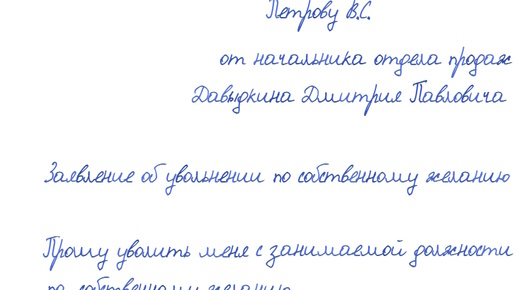 Петрову В.С.
от начальника отдела продаж
Давыдкина Дмитрия Павловича
Заявление об увольнении по собственному желанию
Прошу уволить меня с занимаемой должности
по собственному желанию